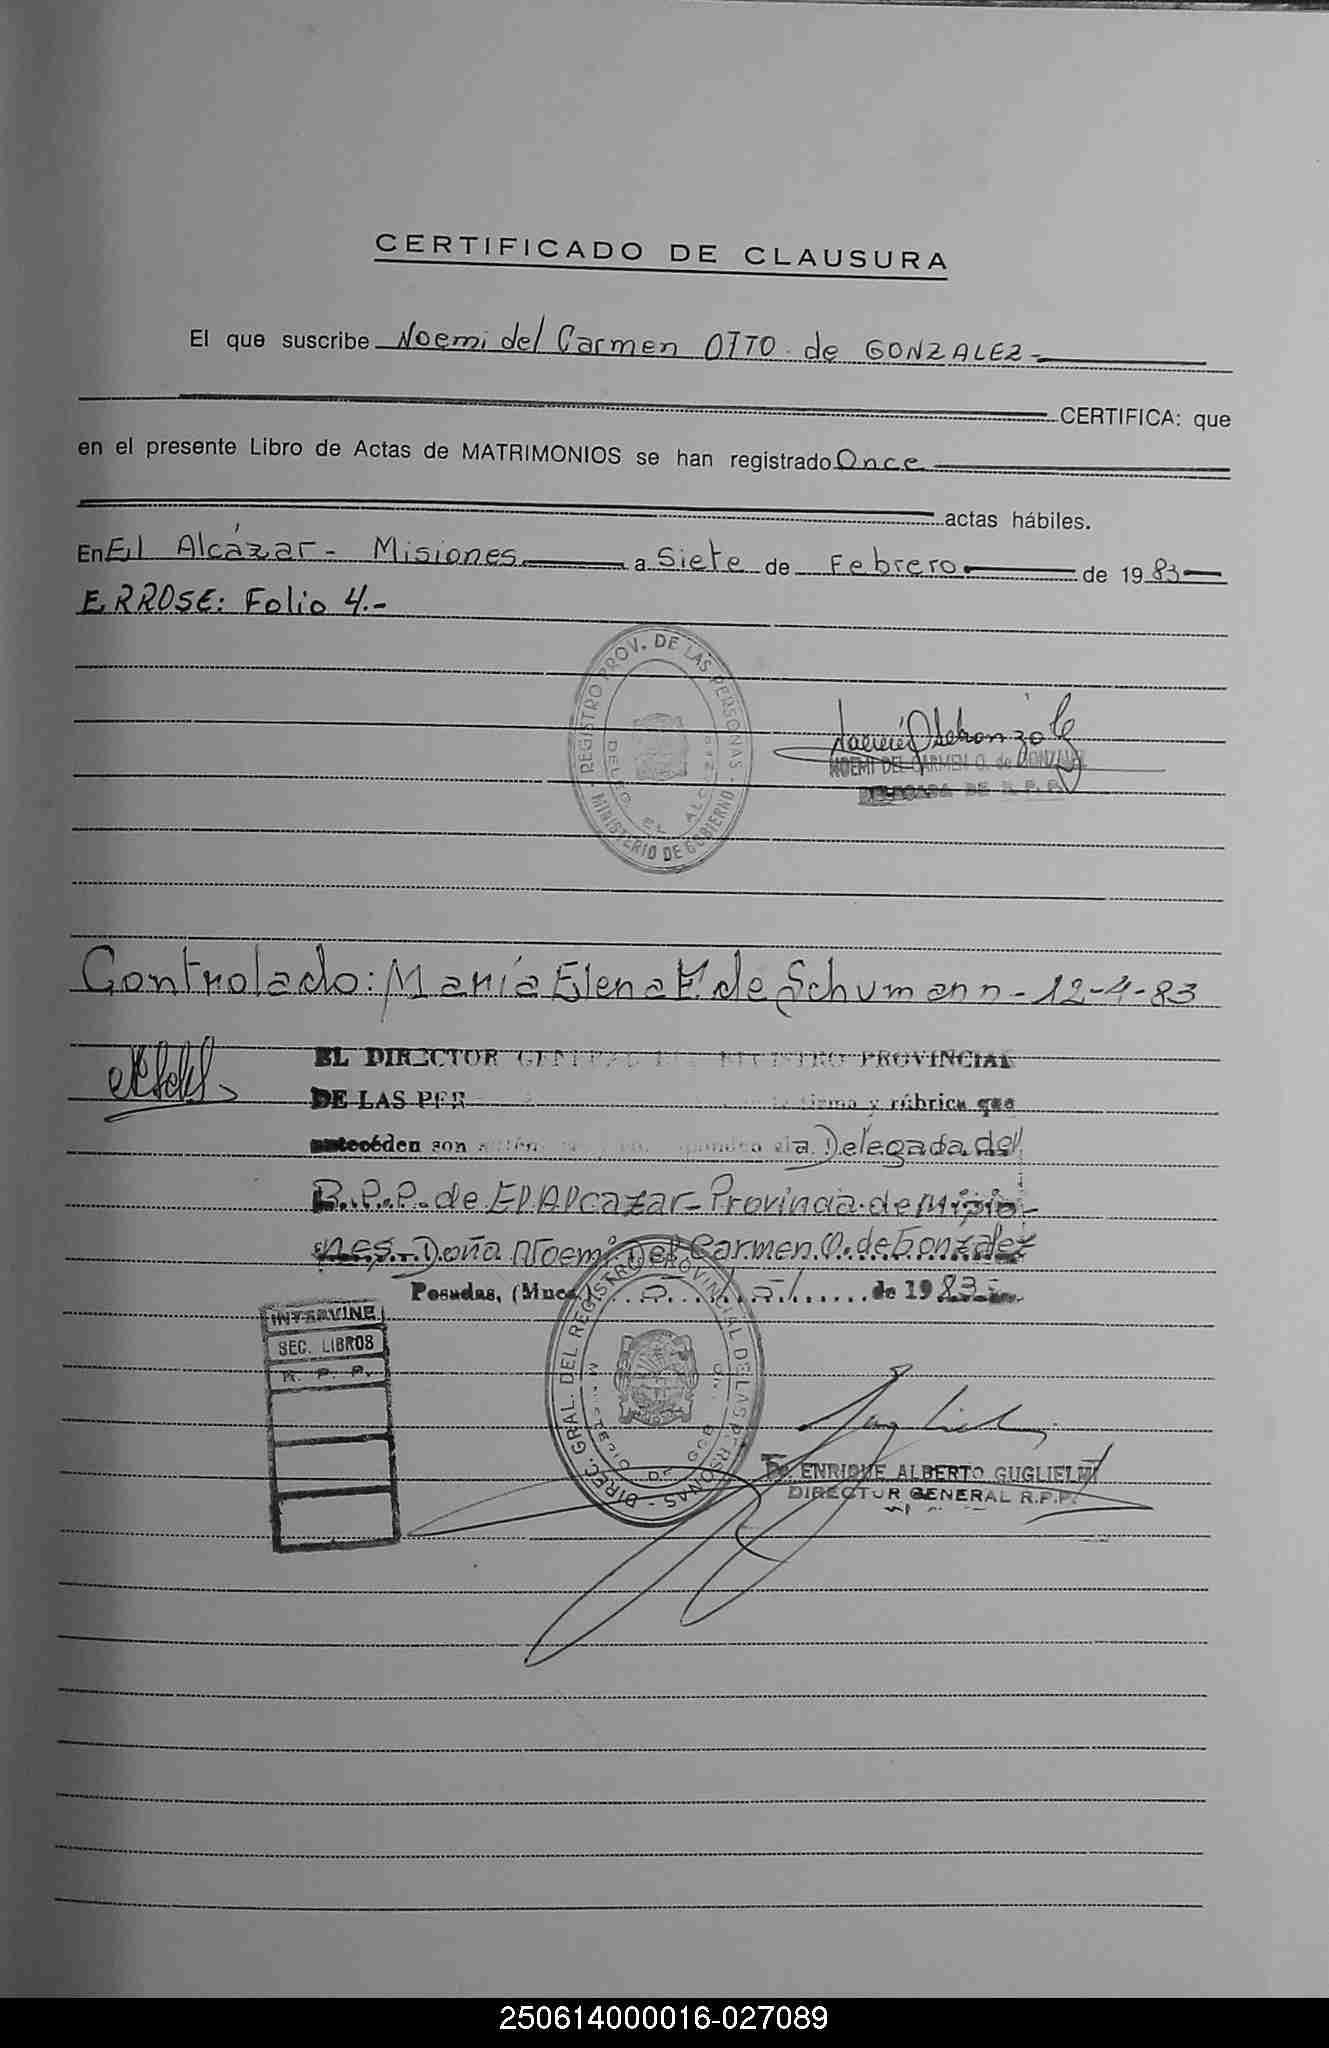 CERTIFICADO DE CLAUSURA
El que suscribe Noemi del Carmen OTTO de GONZALEZ-
CERTIFICA: que
en el presente Libro de Actas de MATRIMONIOS se han registrado Once
actas hábiles.
En El Alcázar - Misiones a Siete de Febrero de 1983
ERROSE: Folio 4.-
REGISTRO PROV. DE LAS PERSONAS - MINISTERIO DE GOBIERNO
DELEG. EL ALCAZAR
NOEMI DEL CARMEN O. de GONZALEZ
DELEGADA DE R. P. P.
Controlado: María Elena K. de Schumann - 12-4-83
EL DIRECTOR GENERAL DEL REGISTRO PROVINCIAL
DE LAS PER firma y rúbrica que
antecéden son la Delegada del
R.P.P. de El Alcazar - Provincia de Misio-
nes. - Doña Noemi Del Carmen O. de Gonzalez
Posadas, (Mnes) de 1983
INTERVINE
SEC. LIBROS
R. P. P.
DIREC. GRAL. DEL REGISTRO PROVINCIAL DE LAS PERSONAS -
MINISTERIO DE GOB
Dr. ENRIQUE ALBERTO GUGLIELMI
DIRECTOR GENERAL R.P.P.
250614000016-027089